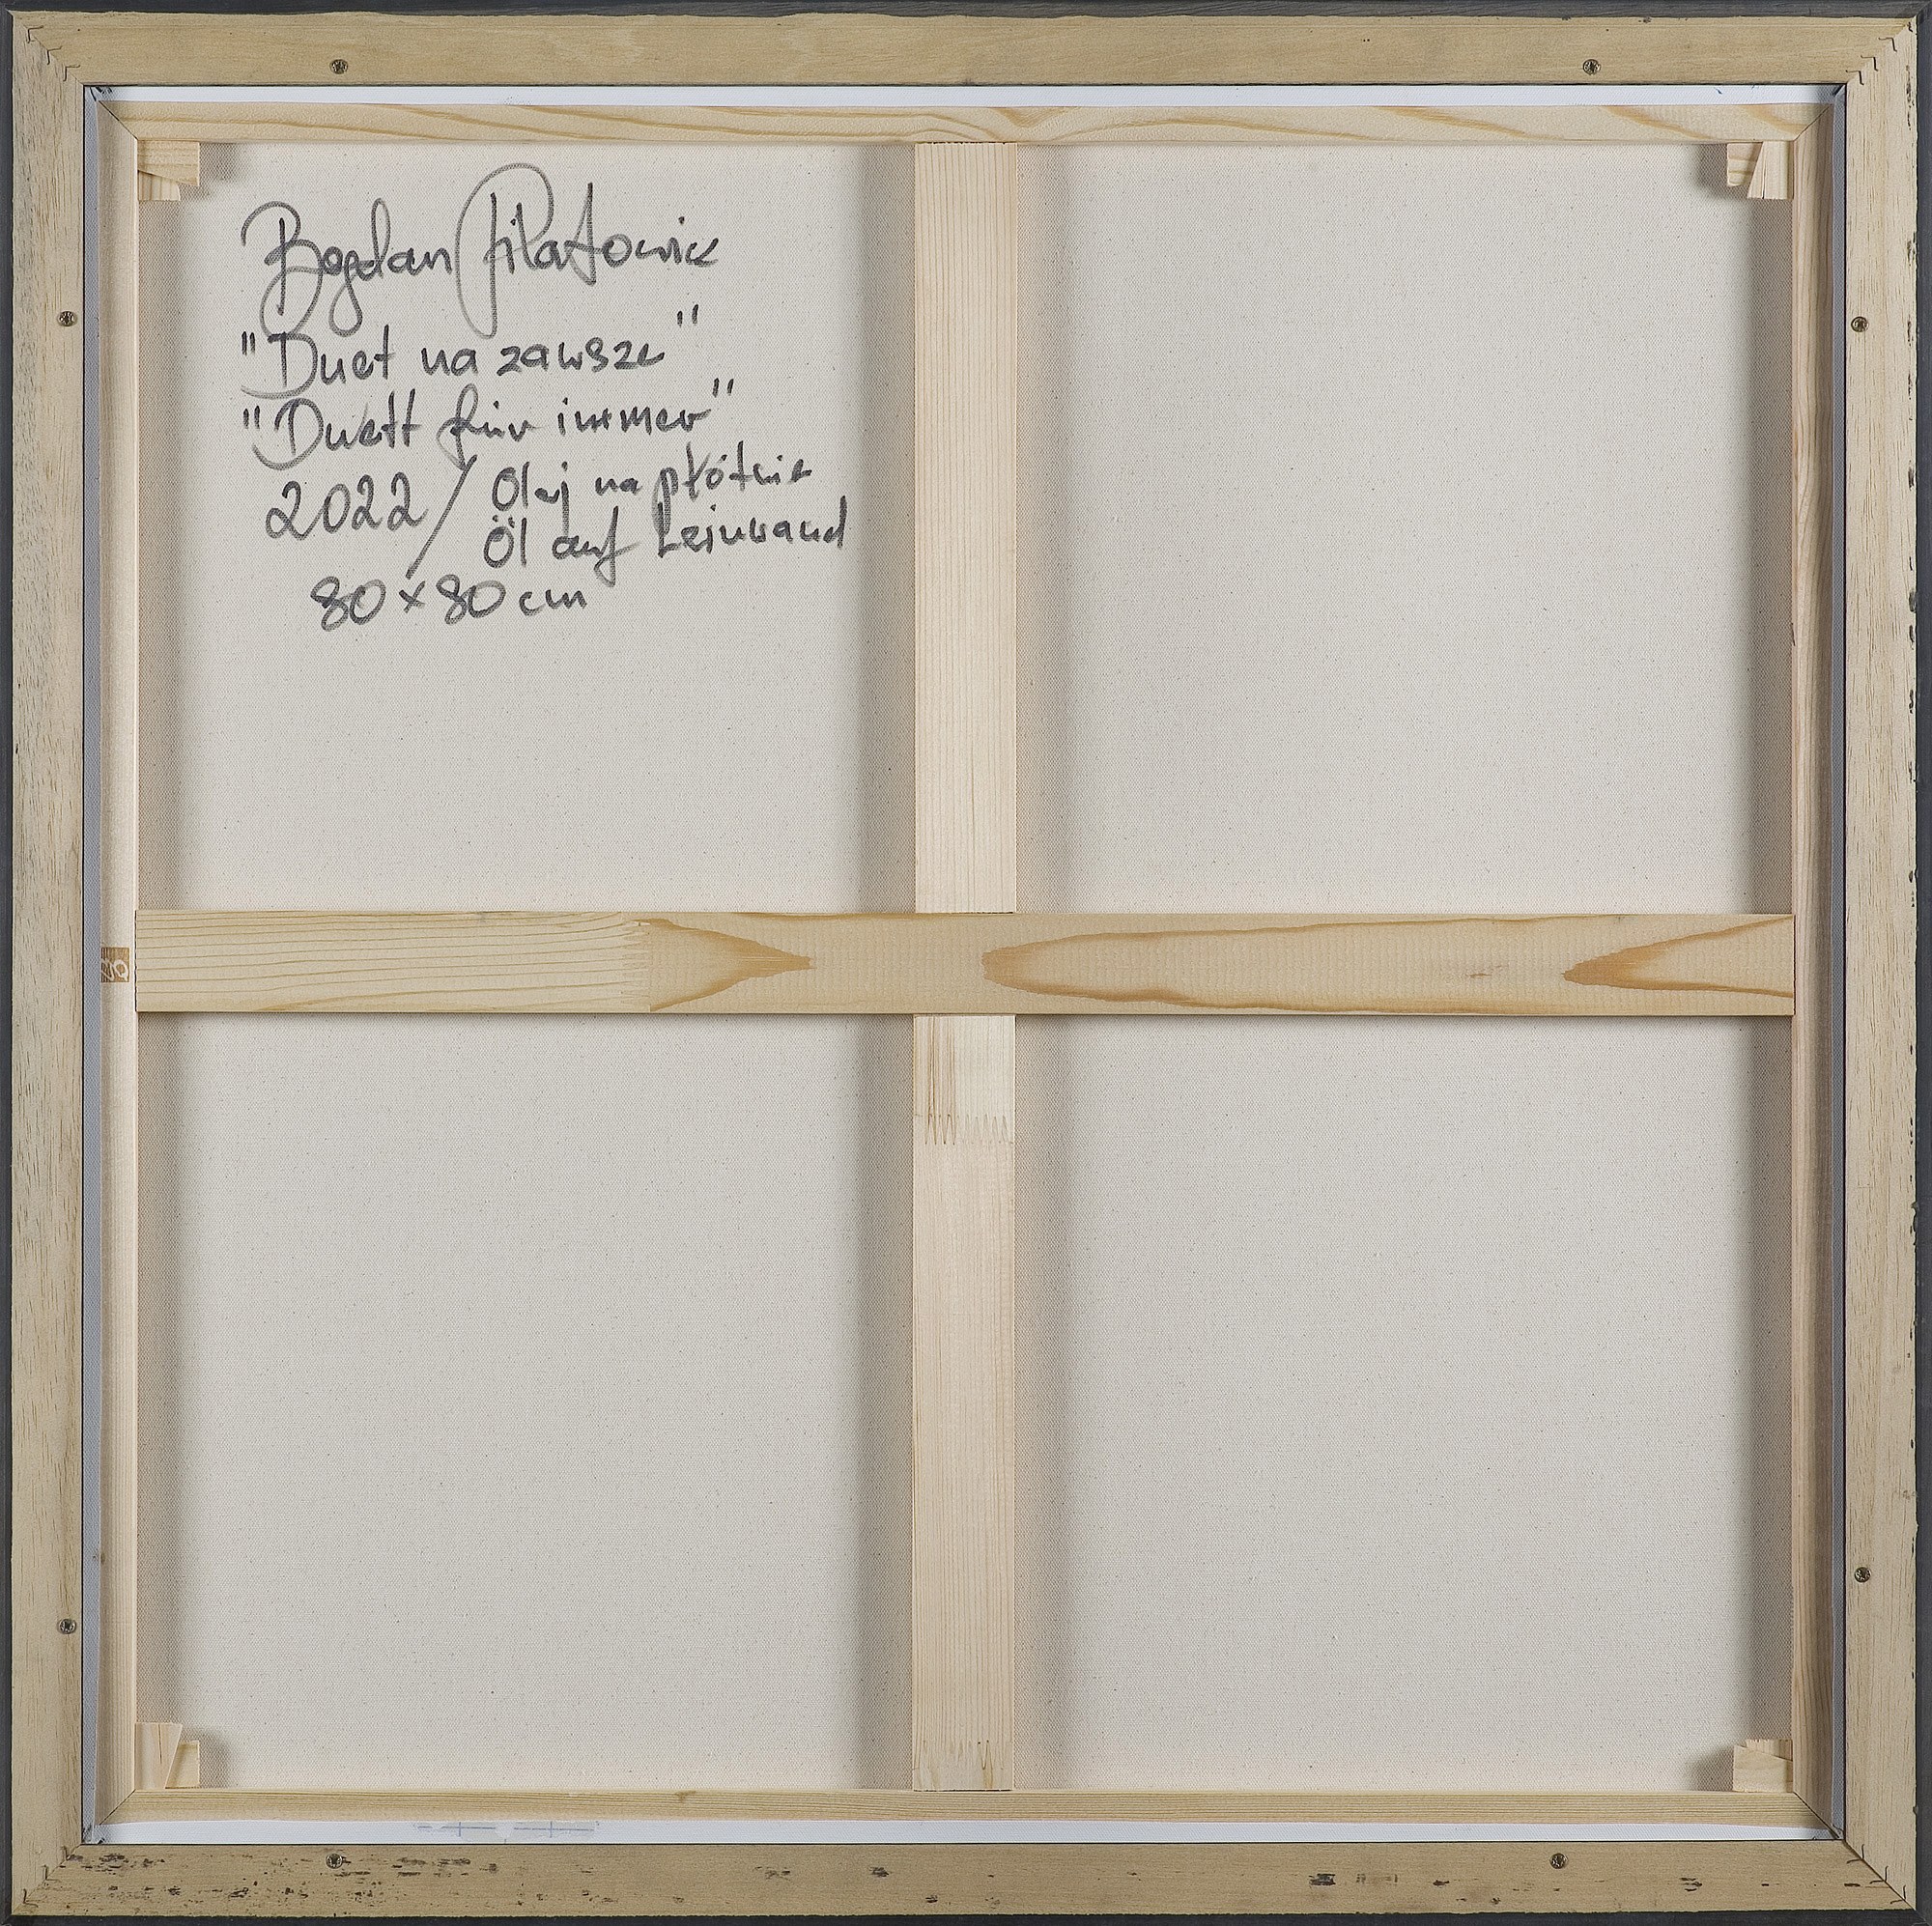 Bogdan Piłatowicz
"Duet na zawsze"
"Duett für immer"
2022 / Olej na płótnie
Öl auf Leinwand
80 x 80 cm